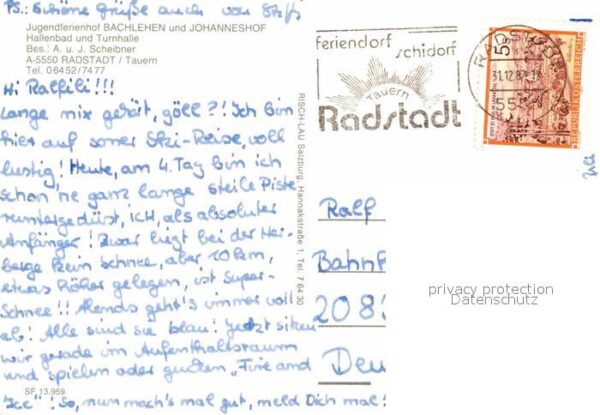 PS.: Schöne Grüße auch von Steffi
Jugendferienhof BACHLEHEN und JOHANNESHOF
Hallenbad und Turnhalle
Bes.: A. u. J. Scheibner
A-5550 RADSTADT / Tauern
Tel. 06452/7477
Hi Ralfili!!!
Lange nix gehört, göll?! Ich bin
hier auf so'ner Ski-Reise, voll
lustig! Heute, am 4. Tag bin ich
schon 'ne ganz lange steile Piste
runtergedüst, ICH, als absoluter
Anfänger! Zwar liegt bei der Her-
berge kein Schnee, aber 10km,
etwas höher gelegen, ist Super-
Schnee!! Abends geht's immer voll
ab! Alle sind sie blau! Jetzt sitzen
wir gerade im Aufenthaltsraum
und spielen oder gucken "Fire and
Ice"! So, nun mach's mal gut, meld Dich mal!
SF 13.959
RISCH-LAU Salzburg, Hannakstraße 1, Tel. 7 64 30
feriendorf
schidorf
Tauern
Radstadt
31.12.87
55
REPUBLIK ÖSTERREICH
5
Ralf
Bahnf
208
Deu
privacy protection
Datenschutz